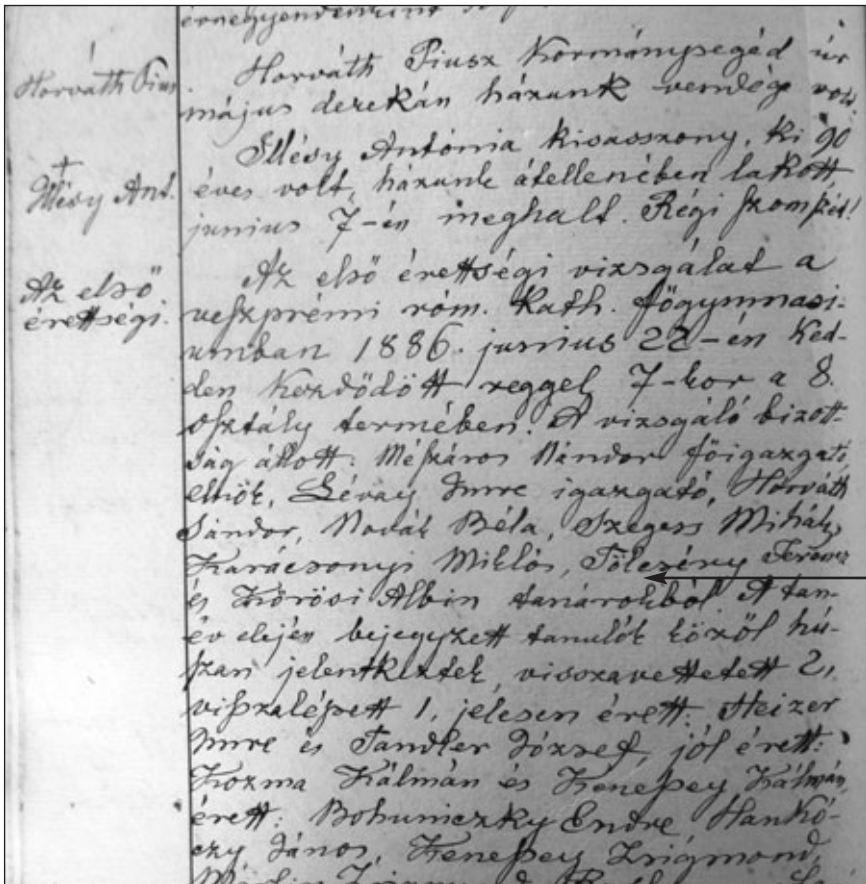 Horváth Pius
Horváth Piusz kormánysegéd úr
május derekán házunk vendége volt
† Illésy Ant.
Illésy Antónia kisasszony, ki 90
éves volt, házunk átellenében lakott,
junius 7-én meghalt. Régi szomszéd!
Az első
érettségi.
Az első érettségi vizsgálat a
veszprémi róm. kath. főgymnasi-
umban 1886. junius 22-én ked-
den kezdődött reggel 7-kor a 8.
osztály termében. A vizsgáló bizott-
ság állott: Mészáros Nándor főigazgató
elnök, Lévay Imre igazgató, Horváth
Sándor, Novák Béla, Szegess Mihály,
Karácsonyi Miklós, Tölcsény Ferencz
és Körösi Albin tanárokból. A tan-
év elején bejegyzett tanulók közöl hú-
szan jelentkeztek, visszavettetett 2,
visszalépett 1, jelesen érett: Steizer
Imre és Tandler József, jól érett:
Kozma Kálmán és Kenessey Kálmán,
érett: Bohuniczky Endre, Hankó-
czy János, Kenessey Zsigmond,